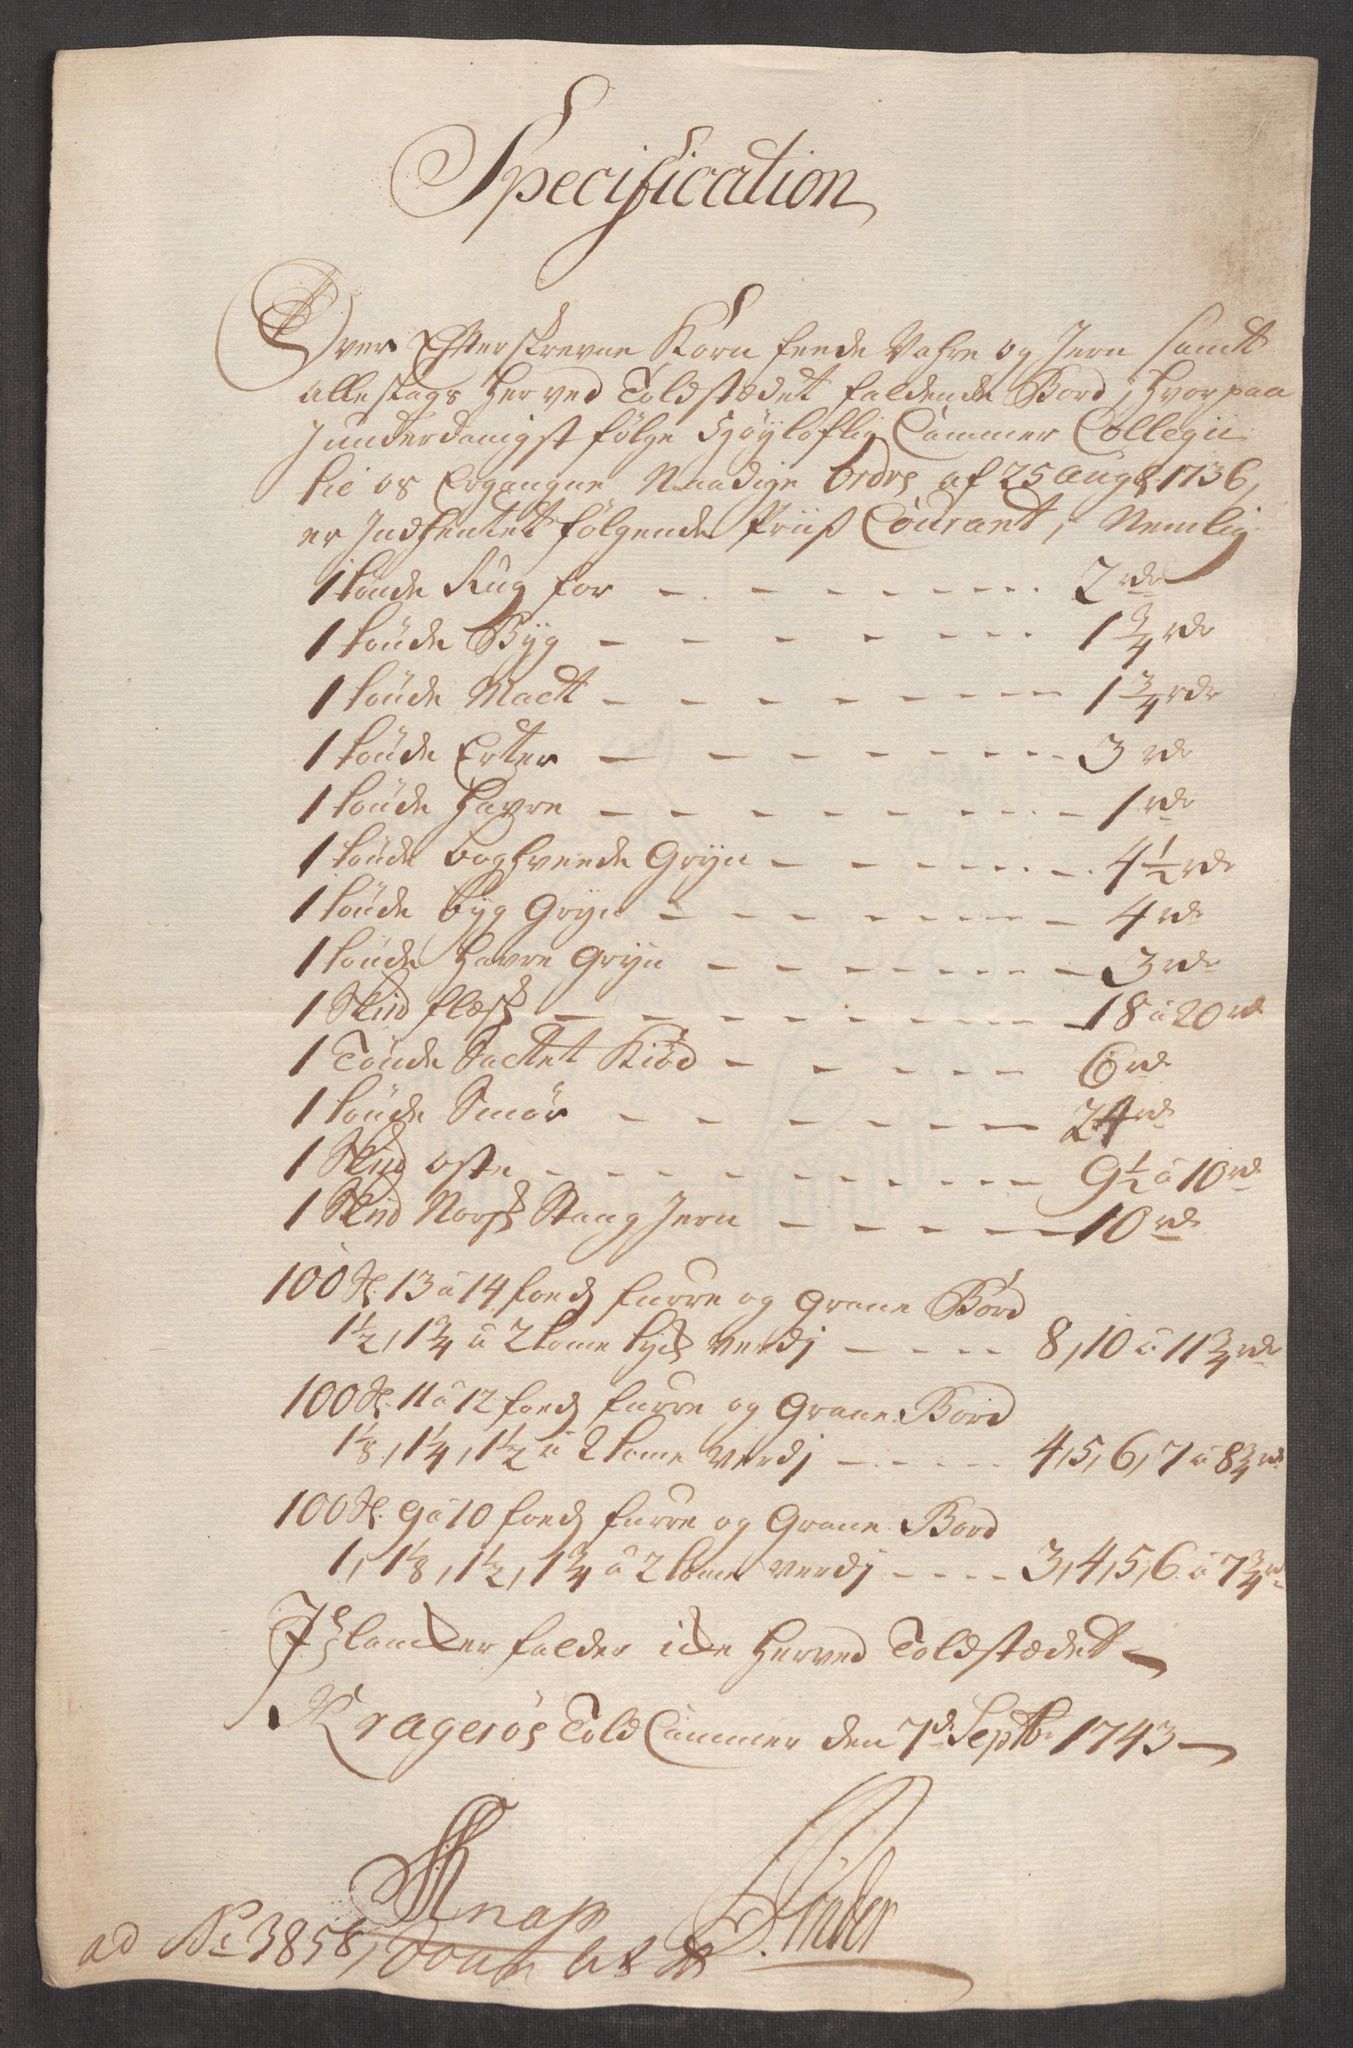 Specification
Over Efterskrevne Korn feede Vahre og Jern samt
alleslags her ved Toldstædet faldende Bord, hvorpaa
I underdanigst følge Høyloflig Cammer Collegii
til os Ergangne Naadige Ordre af 25 Aug 1736,
er Indhentet følgende Priiß Courant, Nemlig
1 tønde Rug for - - - - - - - - 2 rdr
1 tønde Byg - - - - - - - - 1 3/4 rdr
1 tønde Maelt - - - - - - - - 1 3/4 rdr
1 tønde Erter - - - - - - - - 3 rdr
1 tønde Havre - - - - - - - - 1 rdr
1 tønde boghvede Gryn - - - - - - - 4 1/2 rdr
1 tønde byg Gryn - - - - - - - - 4 rdr
1 tønde Havre Gryn - - - - - - - - 3 rdr
1 Skpd flæsk - - - - - - - - 18 a 20 rd
1 Tønde Saltet Kiød - - - - - - 6 rdr
1 tønde Smør - - - - - - - 24 rdr
1 Skpd oste - - - - - - - - 9 1/2 a 10 rdr
1 Skpd Norsk Stang Jern - - - - - 10 rdr
100 st. 13 a 14 foeds furre og Grane Bord
1 1/2, 1 3/4 a 2 tome tyck verdj - - - - 8, 10 a 11 3/4 rdr
100 st. 11 a 12 foeds furre og Grane Bord
1 1/8, 1 1/4, 1 1/2 a 2 tome verdj - - - - - 4, 5, 6, 7 a 8 3/4 rd
100 st. 9 a 10 foeds furre og Grane Bord
1, 1 1/8, 1 1/2, 1 3/4 a 2 tome verdj - - - - 3, 4, 5, 6 a 7 3/4 rd
Plancker falder icke herved Toldstædet
Kragerøes Told Cammer den 7de Septbr 1743
Knap
ad No 3858